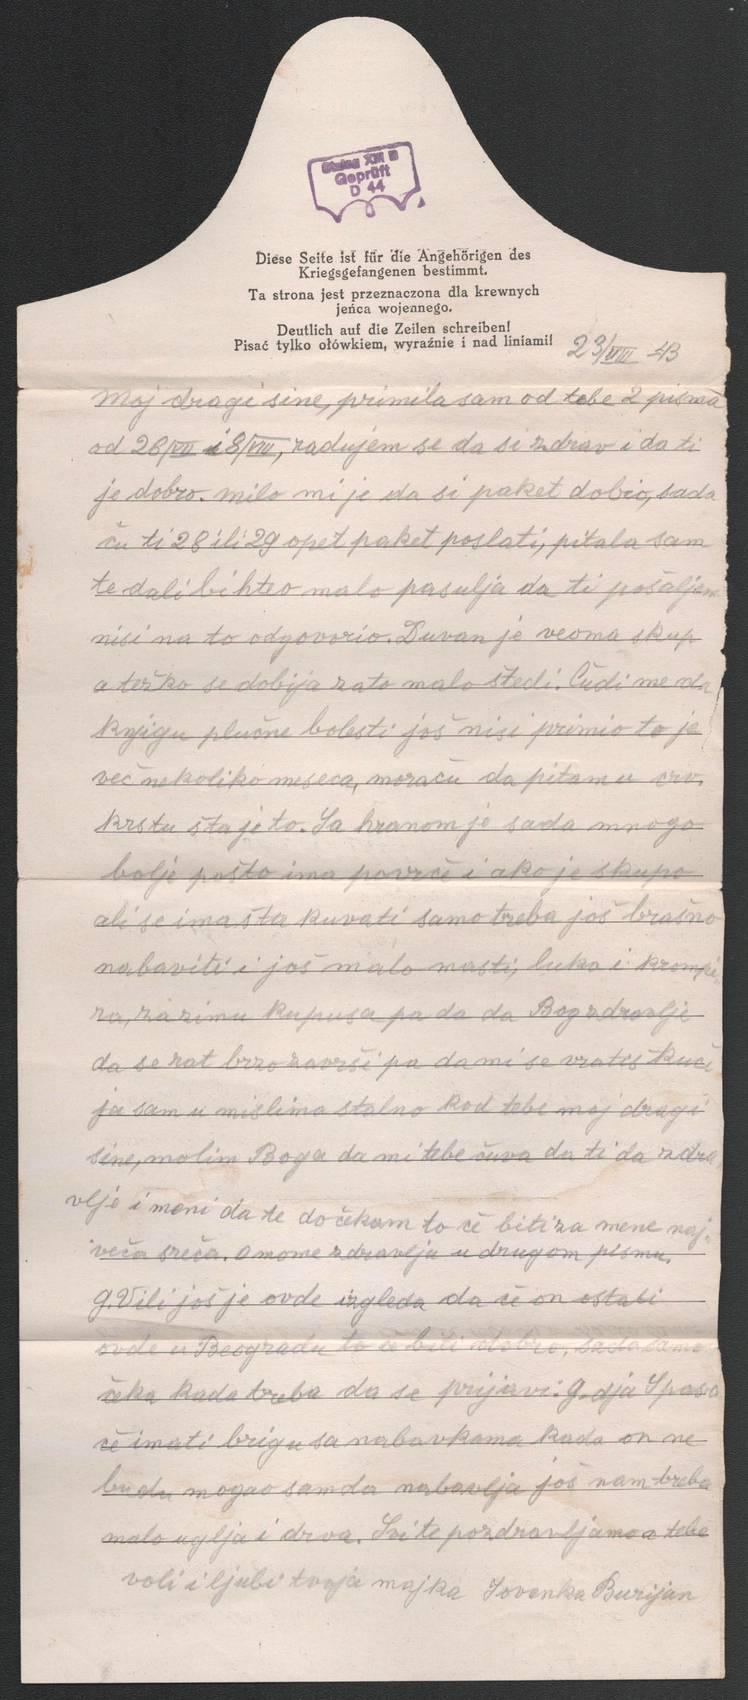 Stalag XVII B
Geprüft
D 44
Diese Seite ist für die Angehörigen des
Kriegsgefangenen bestimmt.
Ta strona jest przeznaczona dla krewnych
jeńca wojennego.
Deutlich auf die Zeilen schreiben!
Pisać tylko ołówkiem, wyraźnie i nad liniami!
23/VIII 43
Moj dragi sine, primila sam od tebe 2 pisma
od 26/VII i 8/VIII, radujem se da si zdrav i da ti
je dobro. Milo mi je da si paket dobio, sada
ću ti 28 ili 29 opet paket poslati, pitala sam
te dali bi hteo malo pasulja da ti pošaljem
nisi na to odgovorio. Duvan je veoma skup
a teško se dobija zato malo štedi. Čudi me da
knjigu plučne bolesti još nisi primio to je
več nekoliko meseca, moraču da pitam u crv.
krstu šta je to. Sa hranom je sada mnogo
bolje pošto ima povrče i ako je skupo
ali se ima šta kuvati samo treba još brašno
nabaviti i još malo masti, luka i krompi-
ra, za zimu kupusa pa da da Bog zdravlje
da se rat brzo završi pa da mi se vratiš kuči
ja sam u mislima stalno kod tebe moj dragi
sine, molim Boga da mi tebe čuva da ti da zdra
vlje i meni da te dočekam to če biti za mene naj-
veča sreča. O mome zdravlju u drugom pismu.
g. Vili još je ovde izgleda da če on ostati
ovde u Beogradu to če biti dobro, sada samo
čeka kada treba da se prijavi. G-dja Spasa
če imati brigu sa nabavkama kada on ne
budu mogao sam da nabavlja još nam treba
malo uglja i drva. Svi te pozdravljamo a tebe
voli i ljubi tvoja majka Jovanka Burijan